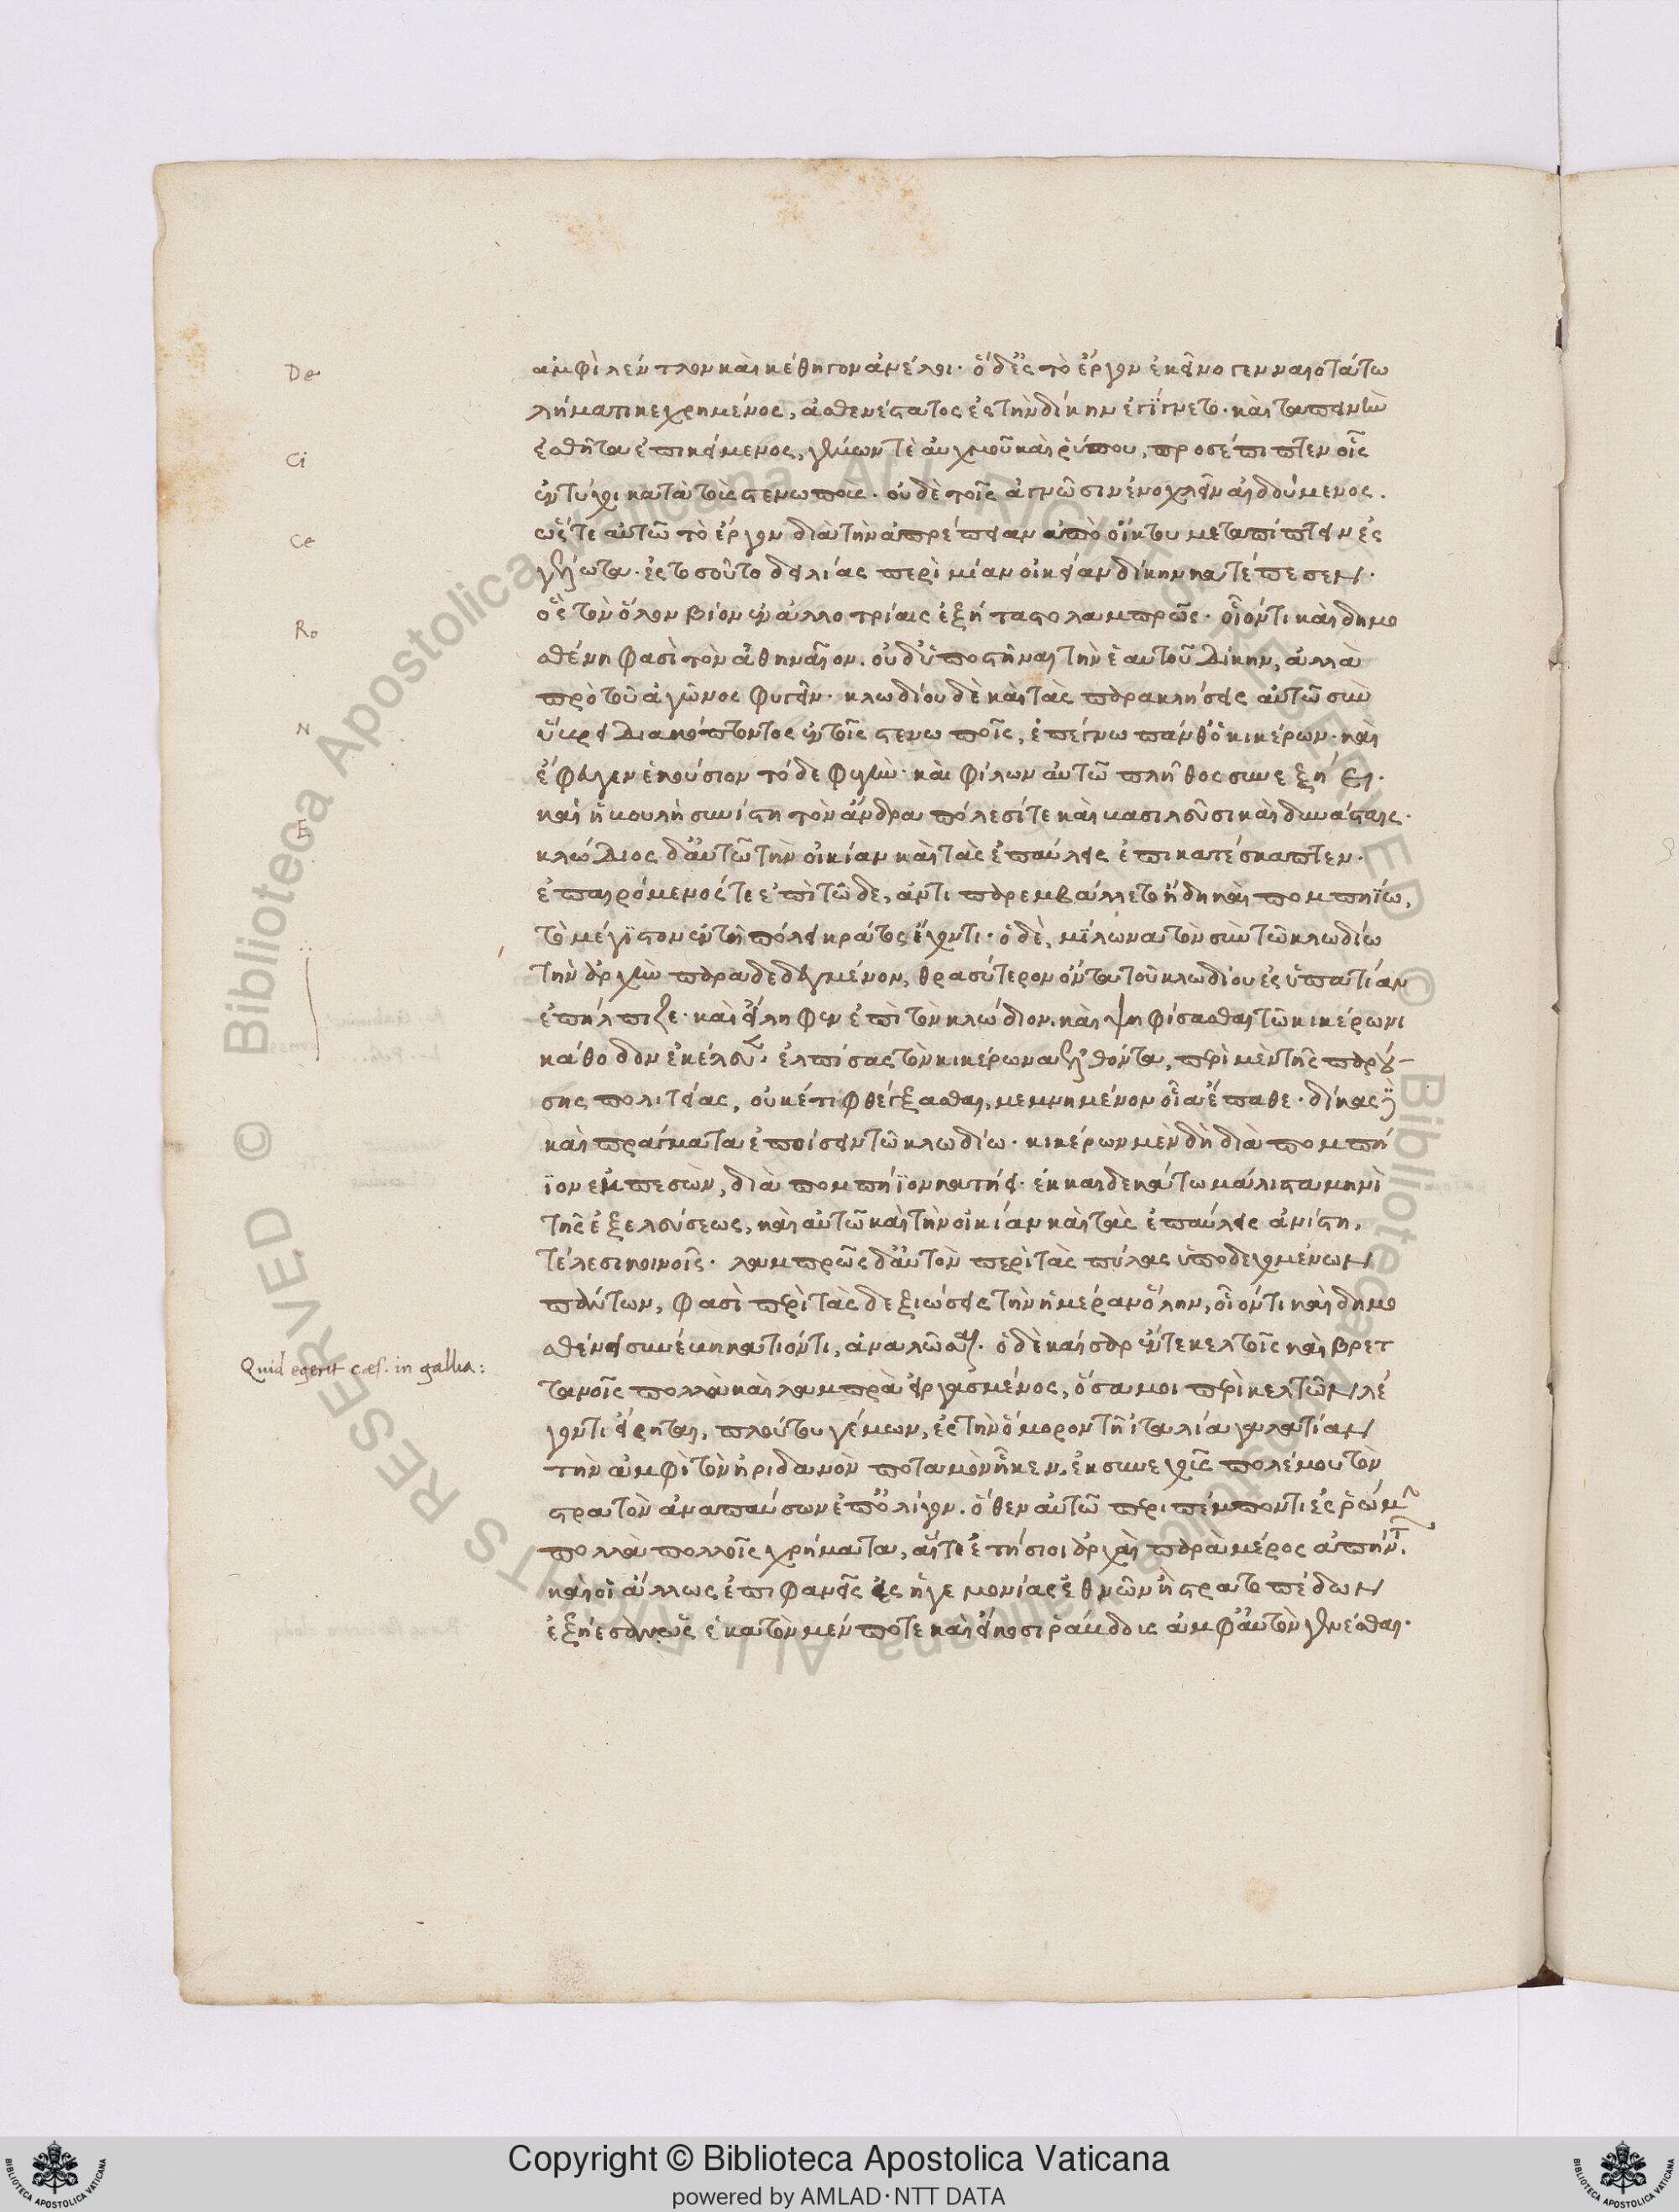 De
Ci
Ce
Ro
N
E
ἀμφὶ λέντλον καὶ κέθηγον ἀνέλοι. ὅδ' ἐς τὸ ἔργον ἐκεῖνο γενναιοτάτω
λήματι κεχρημένος, ἀσθενέστατος ἐς τὴν δίκην ἐγίγνετο. καὶ ταπεινὴν
ἐσθῆτα ἐπικείμενος, γέμων τὲ αὐχμοῦ καὶ ῥύπου, προσέπιπτεν οἷς
ἐντύχοι κατὰ τοὺς στενωπούς. οὐδὲ τοῖς ἀγνῶσιν ἐνοχλεῖν αἰδούμενος.
ὥστε αὐτῶ τὸ ἔργον διὰ τὴν ἀπρέπειαν ἀπὸ οἴκτου μεταπίπτειν ἐς
γέλωτα. ἐς τοσοῦτο δειλίας περὶ μίαν οἰκείαν δίκην κατέπεσεν.
ὃς τὸν ὅλον βίον ἐν ἀλλοτρίαις ἐξήταστο λαμπρῶς. οἷόν τι καὶ δημο
σθένη φασὶ τὸν ἀθηναῖον. οὐδ' ὑποστῆναι τὴν ἑαυτοῦ δίκην, ἀλλὰ
πρὸ τοῦ ἀγῶνος φυγεῖν. κλωδίου δὲ καὶ τὰς παρακλήσεις αὐτῶ σὺν
ὕβρει διακόπτοντος ἐν τοῖς στενωποῖς, ἐπέγνω πάνθ' ὁ κικέρων. καὶ
ἔφευγεν ἑκούσιον τόδε φυγὴν. καὶ φίλων αὐτῶ πλῆθος συνεξήει.
καὶ ἡ βουλὴ συνίστη τὸν ἄνδρα πόλεσί τε καὶ βασιλεῦσι καὶ δυνάσταις.
κλώδιος δ' αὐτῶ τὴν οἰκίαν καὶ τὰς ἐπαύλεις ἐπικατέσκαπτεν.
ἐπαιρόμενός τε ἐπὶ τῶδε, ἀντιπαρεμβάλλετο ἤδη καὶ πομπηίω,
τὸ μέγιστον ἐν τῇ πόλει κράτος ἔχοντι. ὁ δὲ, μίλωνα τὸν σὺν τῶ κλωδίω
τὴν ἀρχὴν παραδεδεγμένον, θρασύτερον ὄντα τοῦ κλωδίου ἐς ὑπατίαν
ἐπήλπιζε. καὶ ἤλειφεν ἐπὶ τὸν κλώδιον. καὶ ψηφίσασθαι τῶ κικέρωνι
κάθοδον ἐκέλευε. ἐλπίσας τὸν κικέρωνα ἐλθόντα, περὶ μὲν τῆς παρού-
σης πολιτείας, οὐκέτι φθέγξασθαι, μεμνημένον οἷα ἔπαθε. δίκας δὲ
καὶ πράγματα ἐποίσειν τῶ κλωδίω. κικέρων μὲν δὴ διὰ πομπή
ϊον ἐκπεσὼν, διὰ πομπήϊον κατήει. ἑκκαιδεκάτω μάλιστα μηνὶ
τῆς ἐξελεύσεως, καὶ αὐτῶ καὶ τὴν οἰκίαν καὶ τὰς ἐπαύλεις ἀνίστη.
τέλεσι κοινοῖς. λαμπρῶς δ' αὐτὸν περὶ τὰς πύλας ὑποδεχομένων
πάντων, φασὶ περὶ τὰς δεξιώσεις τὴν ἡμέραν ὅλην, οἷόν τι καὶ δημο
σθένει συνέβη κατιόντι, ἀναλῶσαι. ὁ δὲ καῖσαρ ἔν τε κελτοῖς καὶ βρετ
τανοῖς πολλὰ καὶ λαμπρὰ εἰργασμένος, ὅσα μοι περὶ κελτῶν λέ
γοντι εἴρηται, πλούτου γέμων, ἐς τὴν ὅμορον τῇ ἰταλία γαλατίαν
τὴν ἀμφὶ τὸν ἠριδανὸν ποταμὸν ἧκεν. ἐκ συνεχοῦς πολέμου τὸν
στρατὸν ἀναπαύσων ἐπ' ὀλίγον. ὅθεν αὐτῶ περιπέμποντι ἐς ῥώμην
πολλὰ πολλοῖς χρήματα, αἵ τε ἐτήσιοι ἀρχαὶ παρὰ μέρος ἀπήντων.
καὶ οἱ ἄλλως ἐπιφανεῖς ἐς ἡγεμονίας ἐθνῶν ἢ στρατοπέδων
ἐξήεσαν. ὡς ἑκατὸν μέν ποτε καὶ εἴκοσι ῥάβδους ἀμφ' αὐτὸν γενέσθαι.
Quid egerit cæs. in gallia:
Copyright © Biblioteca Apostolica Vaticana
powered by AMLAD·NTT DATA